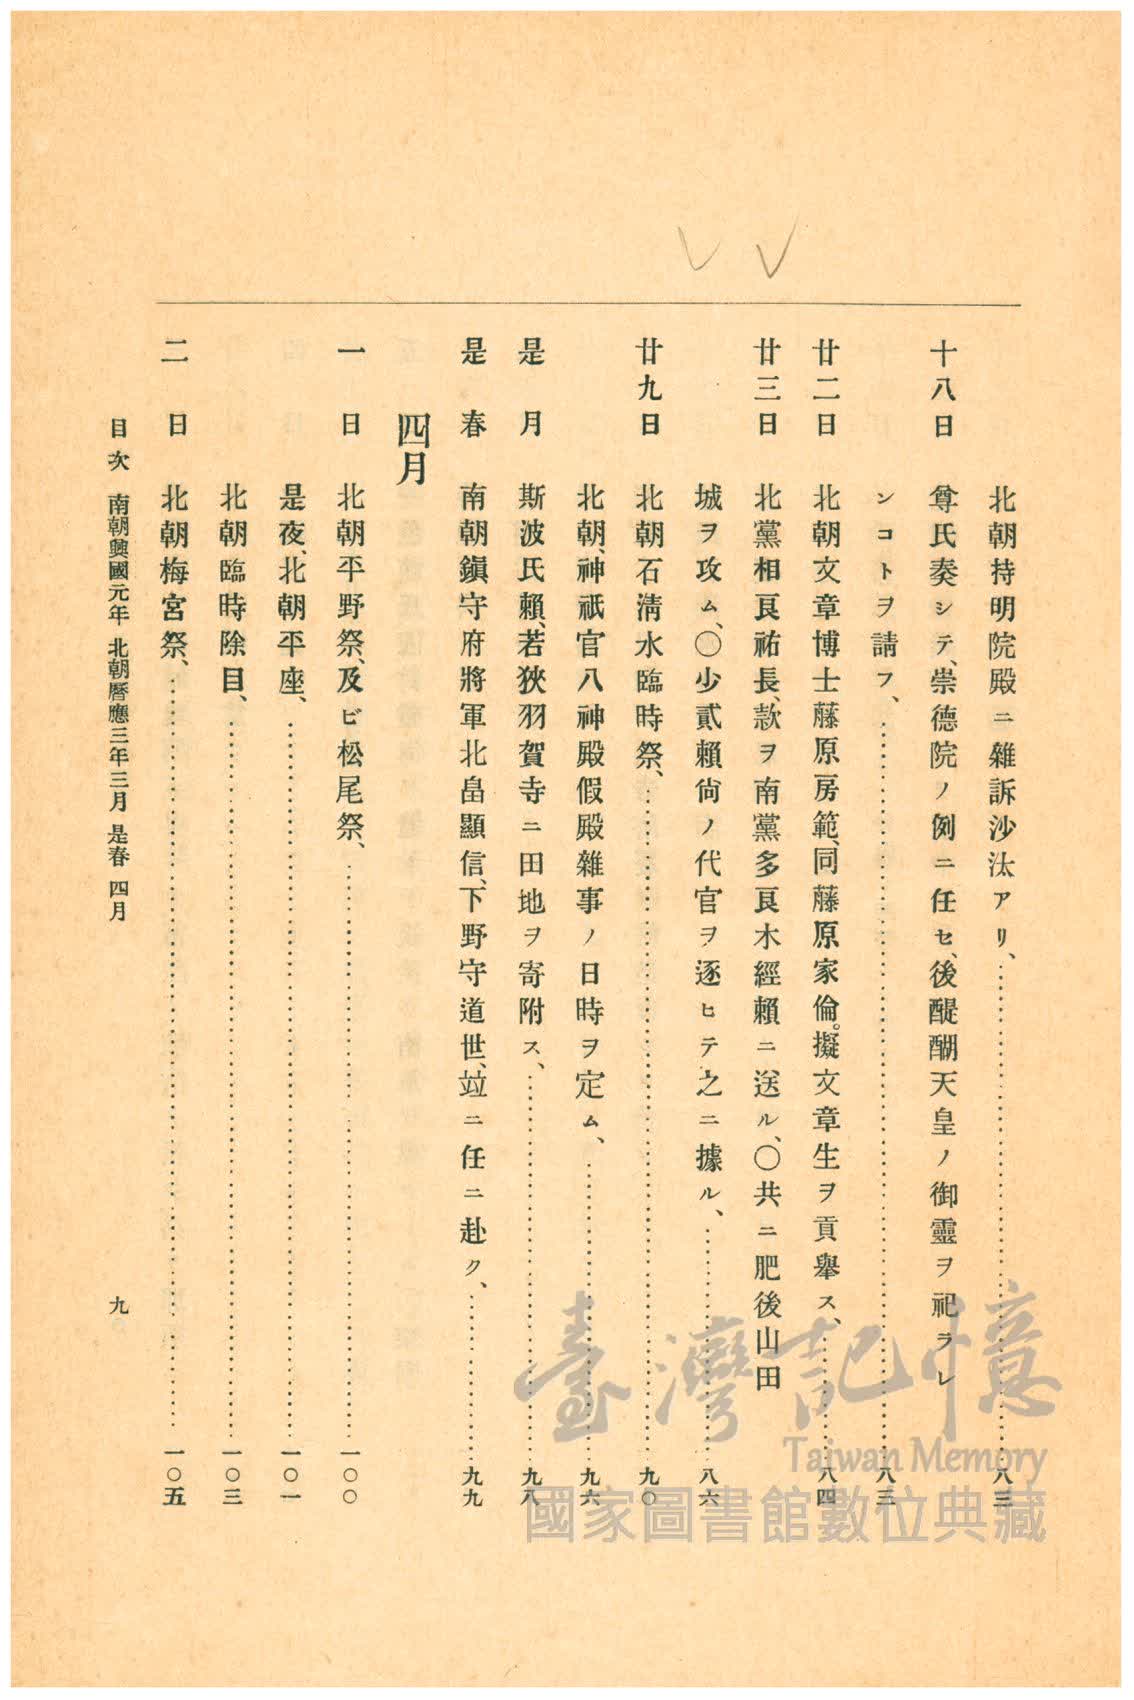 北朝持明院殿ニ雜訴沙汰アリ、……八三
十八日 尊氏奏シテ、崇德院ノ例ニ任セ、後醍醐天皇ノ御靈ヲ祀ラレ
ンコトヲ請フ、……八三
廿二日 北朝文章博士藤原房範、同藤原家倫。擬文章生ヲ貢擧ス、……八四
廿三日 北黨相良祐長、款ヲ南黨多良木經賴ニ送ル、〇共ニ肥後山田
城ヲ攻ム、〇少貳賴尙ノ代官ヲ逐ヒテ之ニ據ル、……八六
廿九日 北朝石淸水臨時祭、……九〇
北朝、神祇官八神殿假殿雜事ノ日時ヲ定ム、……九六
是月 斯波氏賴、若狹羽賀寺ニ田地ヲ寄附ス、……九八
是春 南朝鎭守府將軍北畠顯信、下野守道世、竝ニ任ニ赴ク、……九九
四月
一日 北朝平野祭、及ビ松尾祭、……一〇〇
是夜、北朝平座、……一〇一
北朝臨時除目、……一〇三
二日 北朝梅宮祭、……一〇五
目次 南朝興國元年 北朝曆應三年三月 是春 四月 九
臺灣記憶
Taiwan Memory
國家圖書館數位典藏